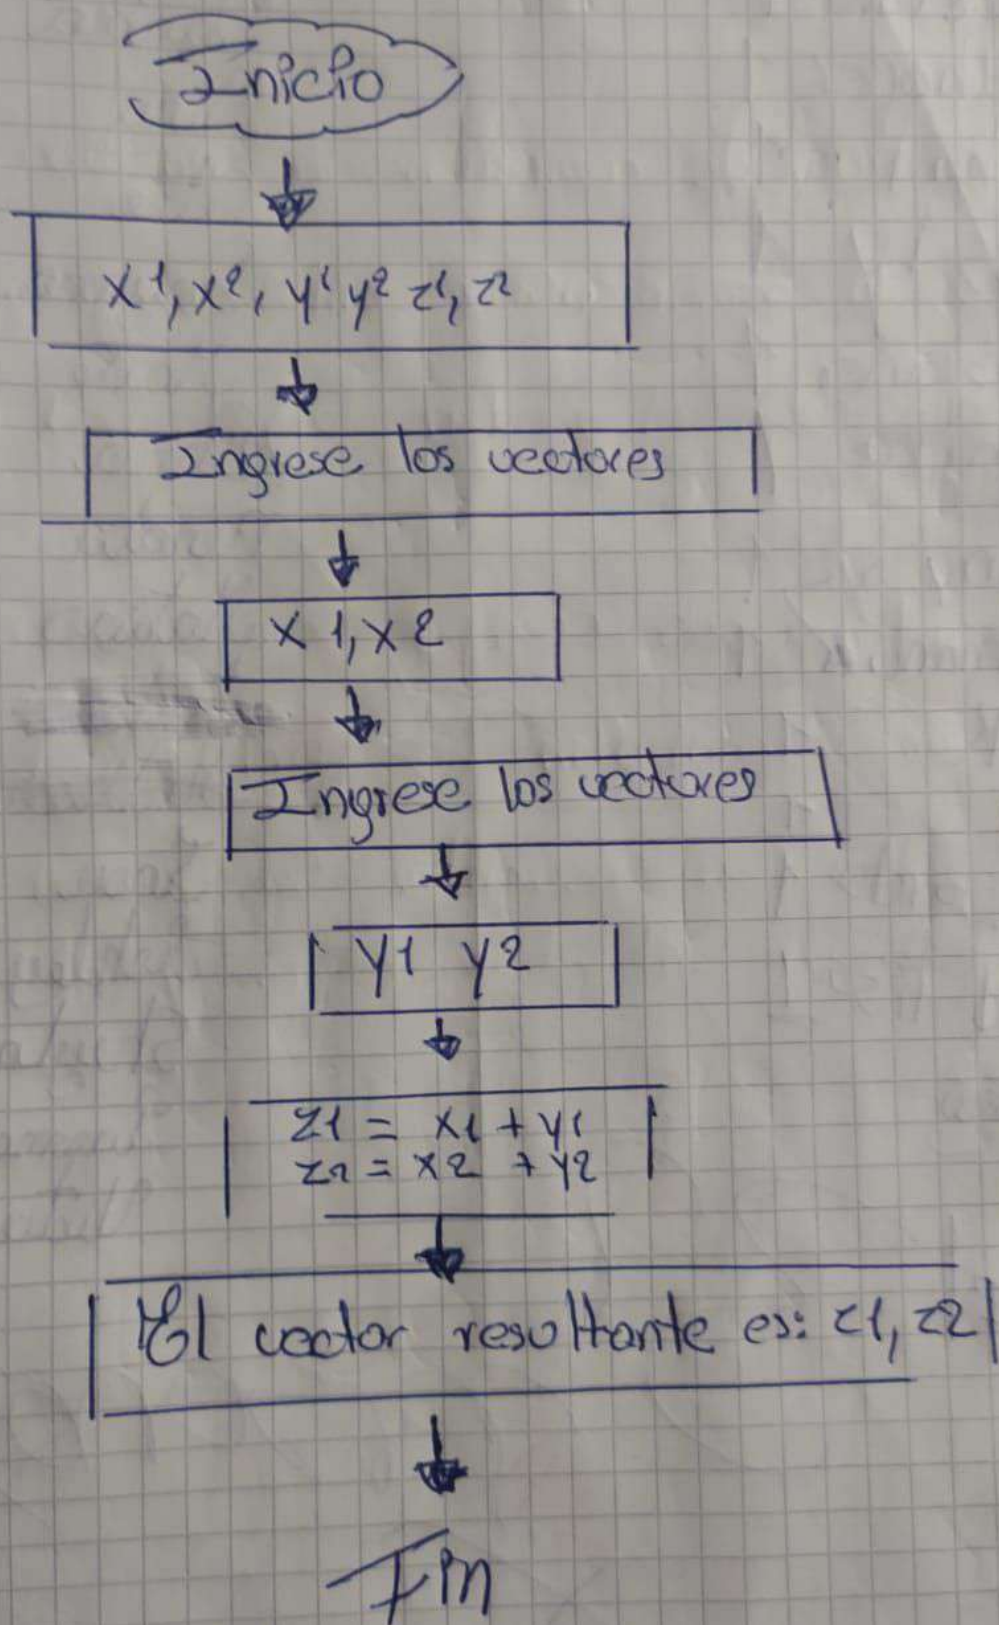 Inicio
X1, X2, Y1 Y2 Z1, Z2
Ingrese los vectores
X 1, X 2
Ingrese los vectores
Y1 Y2
Z1 = X1 + Y1
Z2 = X2 + Y2
El vector resultante es: Z1, Z2
Fin